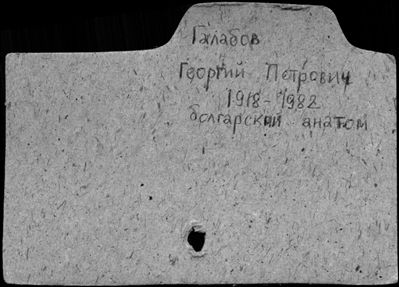 Галабов
Георгий Петрович
1918-1982
болгарский анатом